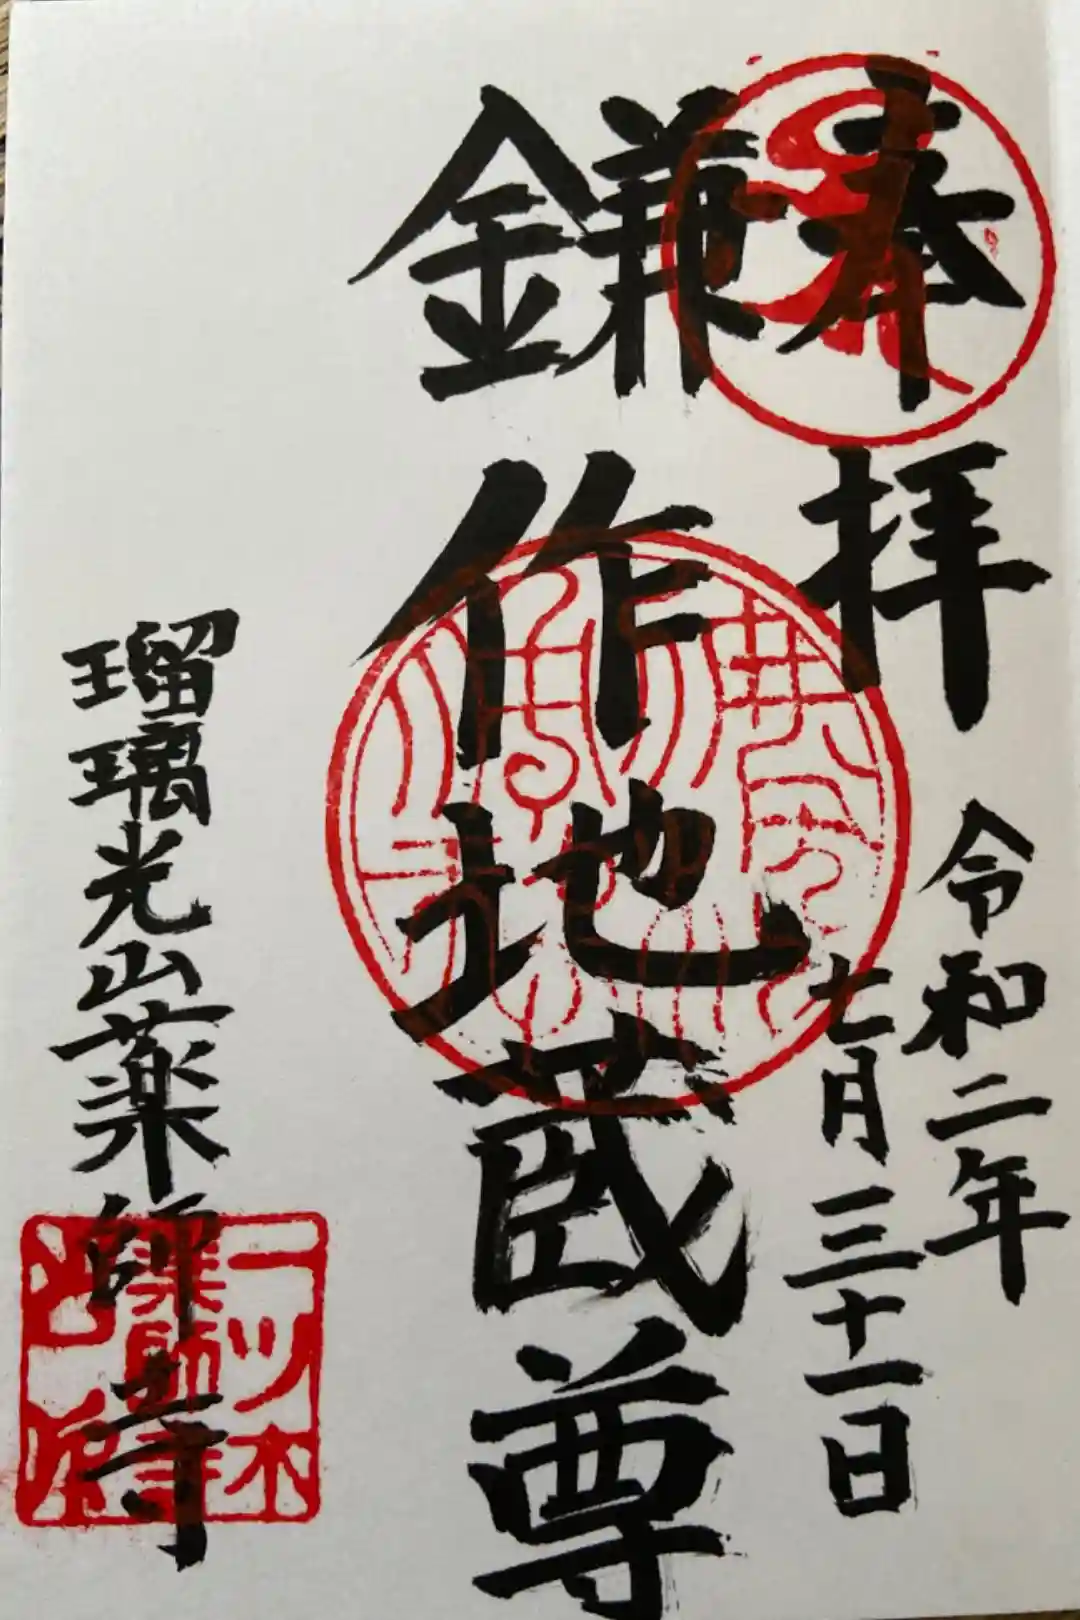 奉拝
令和二年
七月三十一日
鎌作地蔵尊
瑠璃光山薬師寺
一ツ木
薬師寺